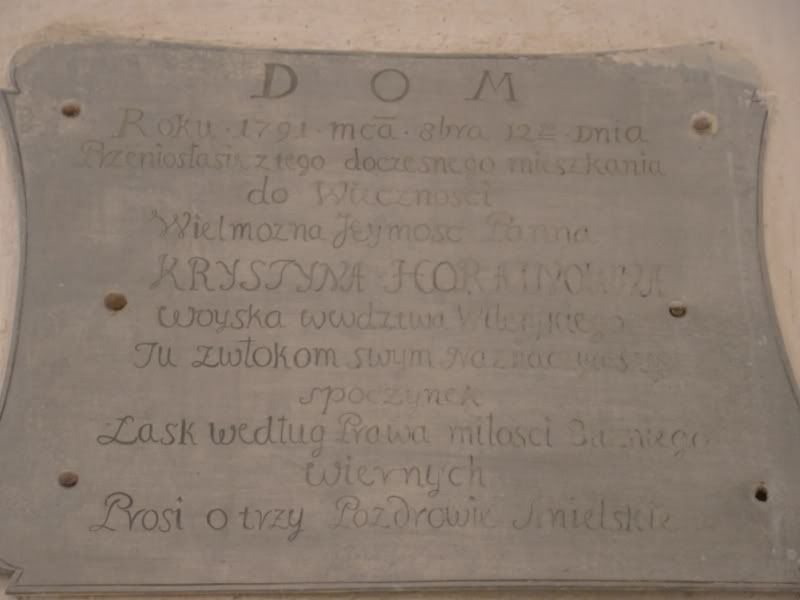 D O M
Roku · 1791 · mcã · 8bra 12 Dnia
Przeniosłasie z tego doczesnego mieszkania
do Wieczności
Wielmozna Jeymosc Panna
KRYSTYNA HORAINOWNA
Woyska wwdztwa
Tu zwłokom swym
spoczynek
Łask według Prawa milosci
wiernych
Prosi o trzy Pozdrowie Anielskie